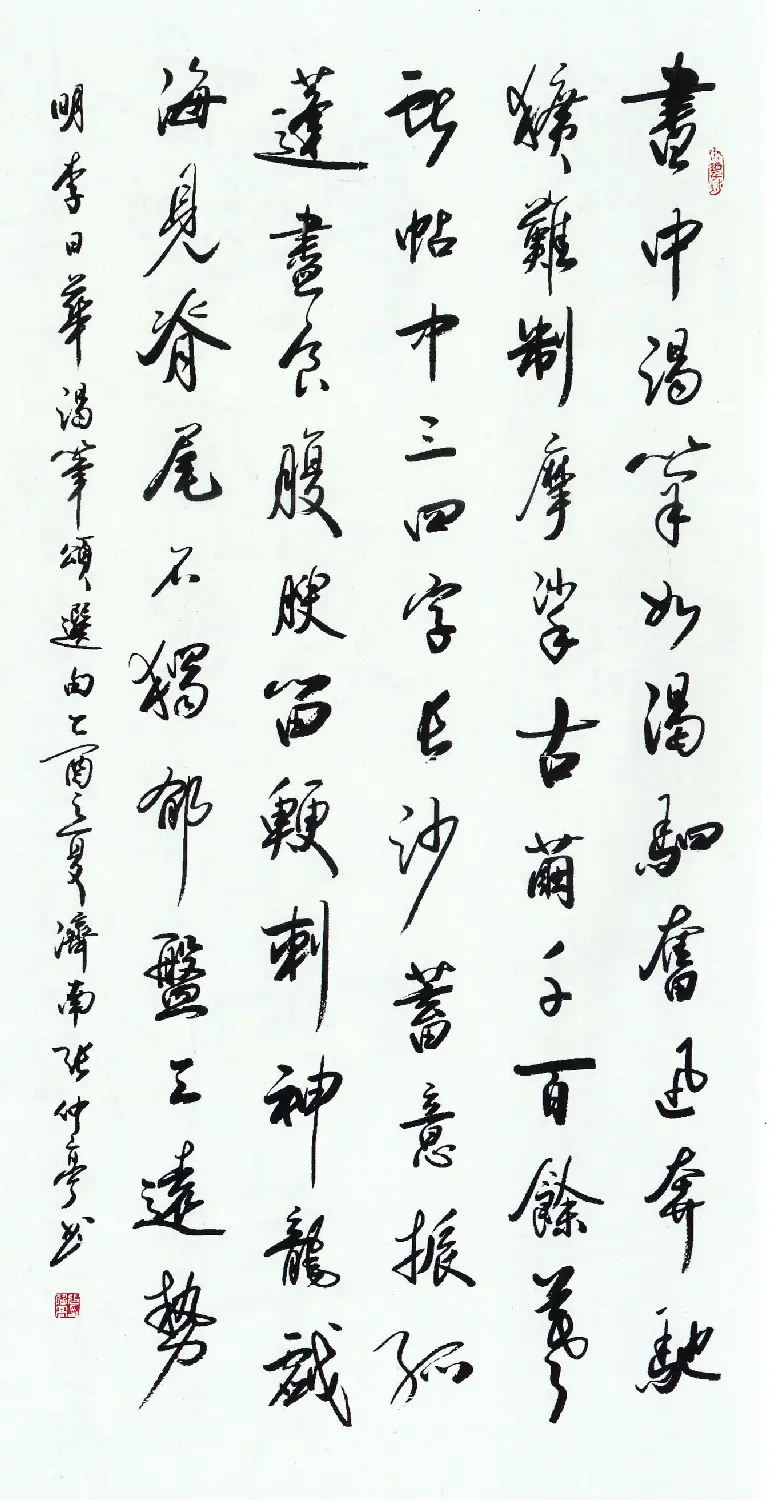 書中渴筆如渴駟奮迅奔馳
獷難制摩挲古繭千百餘羲
獻帖中三四字長沙蓄意振孤
蓬盡食腹腴留鯁刺神龍戲
海見脊尾不獨郁盤工遠勢
明李日華渴筆頌選由乙酉之夏濟南張仲亭书